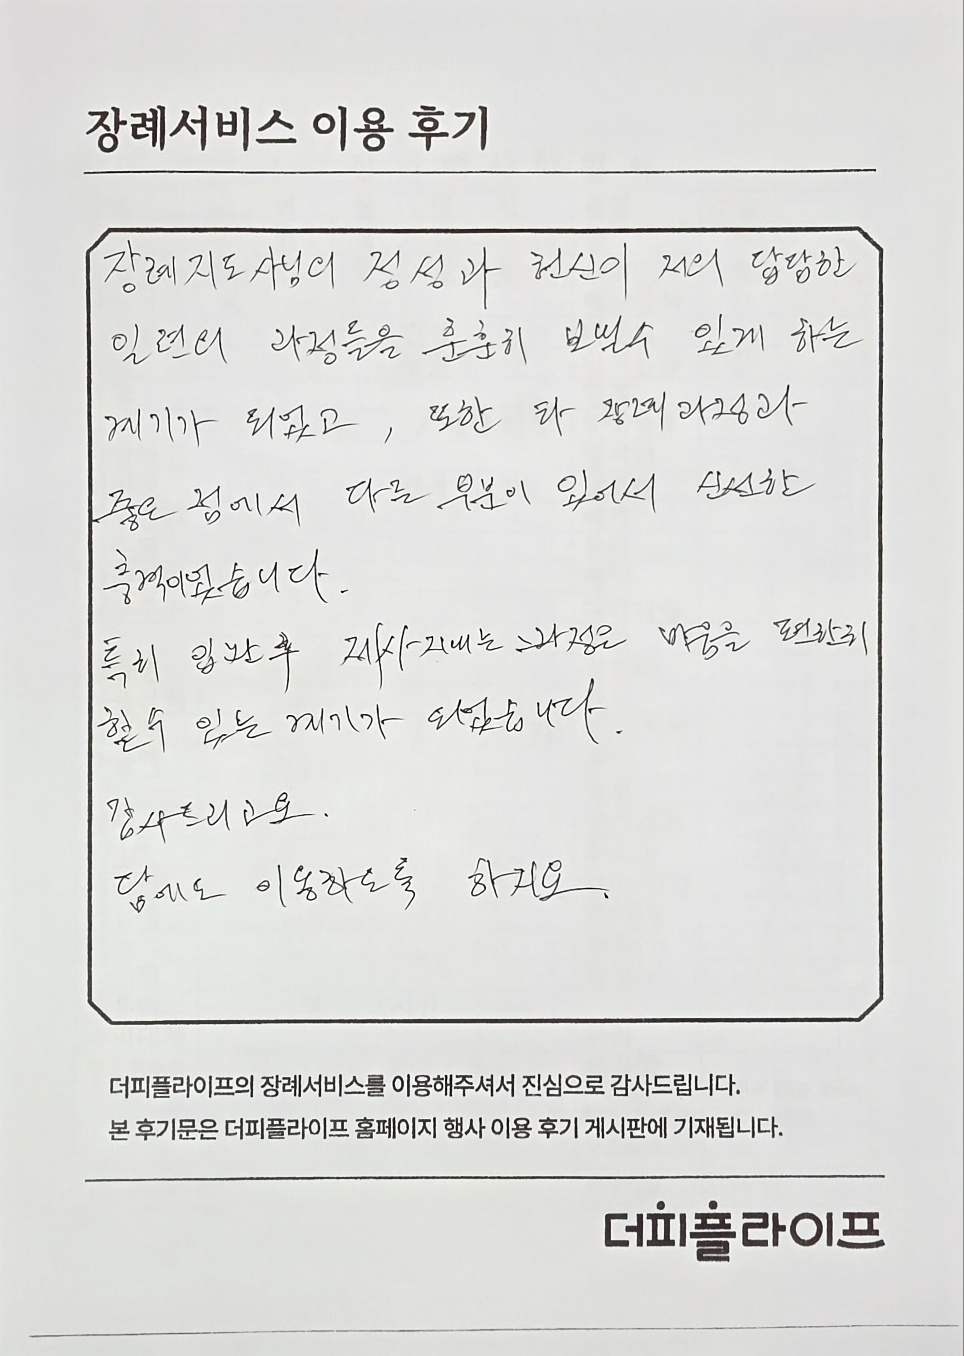 장례서비스 이용 후기
장례지도사님의 정성과 헌신이 저의 답답한
일련의 과정들을 훈훈히 보낼수 있게 하는
계기가 되었고, 또한 타 장례과정과
좋은 점에서 다른 부분이 있어서 신선한
충격이었습니다.
특히 입관후 제사지내는 과정은 마음을 편안히
할수 있는 계기가 되었습니다.
감사드리고요.
담에도 이용하도록 하지요.
더피플라이프의 장례서비스를 이용해주셔서 진심으로 감사드립니다.
본 후기문은 더피플라이프 홈페이지 행사 이용 후기 게시판에 기재됩니다.
더피플라이프